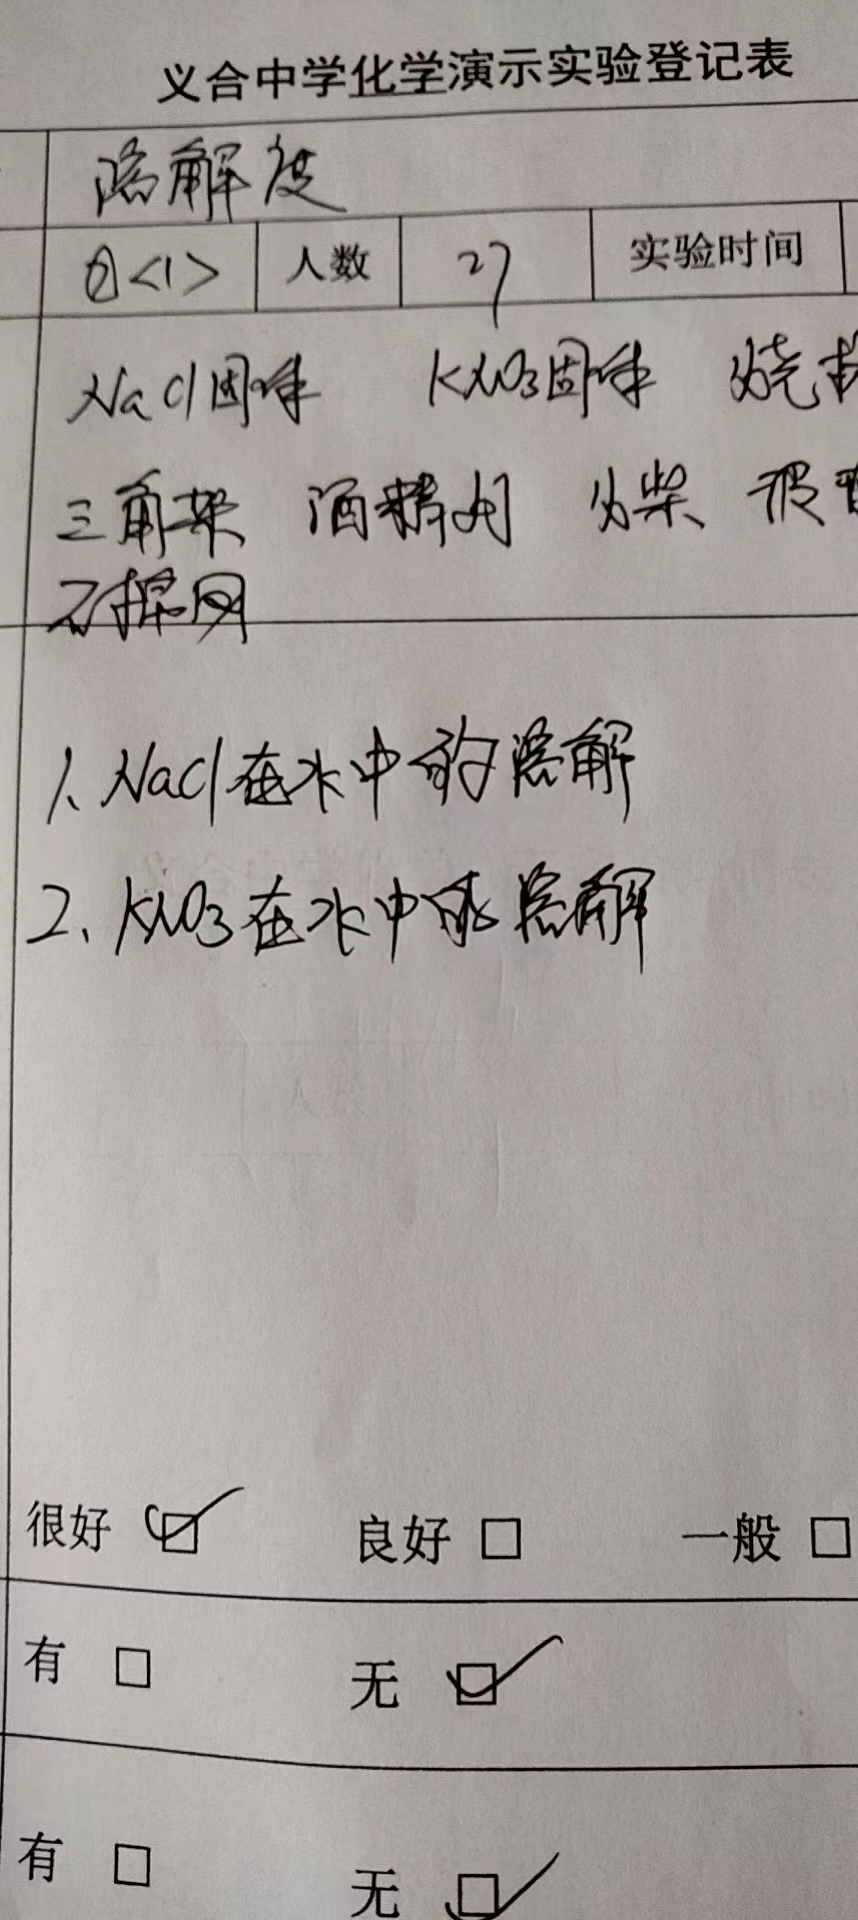 义合中学化学演示实验登记表
溶解度
九<1> 人数 27 实验时间
NaCl固体 KNO3固体 烧
三角架 酒精灯 火柴 玻
石棉网
1、NaCl在水中的溶解
2、KNO3在水中的溶解
很好 ☑ 良好 □ 一般 □
有 □ 无 ☑
有 □ 无 ☑